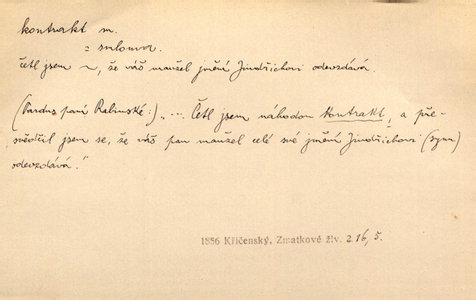 kontrakt m.
= smlouva.
četl jsem ~, že váš manžel jmění Jindřichovi odevzdává.
(Pardus paní Rabinské:) „... Četl jsem náhodou kontrakt, a pře-
svědčil jsem se, že váš pan manžel celé své jmění Jindřichovi (syn)
odevzdává."
1856 Křičenský, Zmatkové živ. 2. 16, 5.